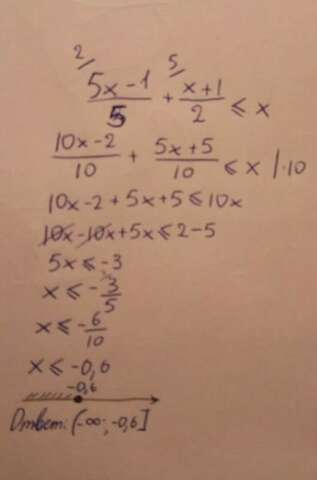 2/ (5x-1)/5 + 5/ (x+1)/2 ⩽ x
(10x-2)/10 + (5x+5)/10 ⩽ x |·10
10x-2+5x+5⩽10x
10x-10x+5x⩽2-5
5x⩽-3
x⩽-3/5
x⩽-6/10
x⩽-0,6
-0,6
Ответ: (-∞; -0,6]